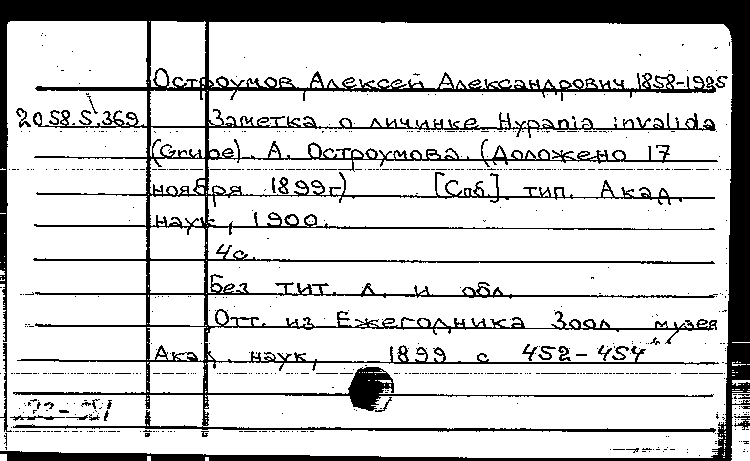 Остроумов, Алексей Александрович, 1858-1925
20.58.5.369. Заметка о личинке Hypania invalida
(Grube). А. Остроумова. (Доложено 17
ноября 1899г.) [Спб.] тип. Акад.
наук, 1900.
4с.
Без тит. л. и обл.
Отт. из Ежегодника Зоол. музея
Акад. наук, 1899 с 452-454